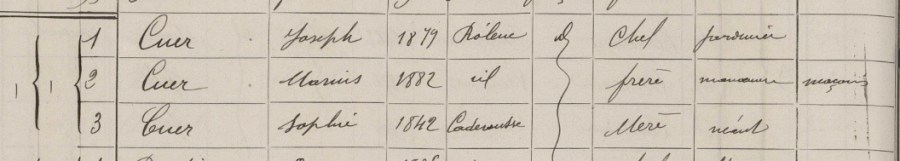 1 1 1 Cuer Joseph 1879 Bolène d Chef jardinier
2 Cuer Marius 1882 id frère manœuvre maçons
3 Cuer Sophie 1842 Caderousse Mère néant